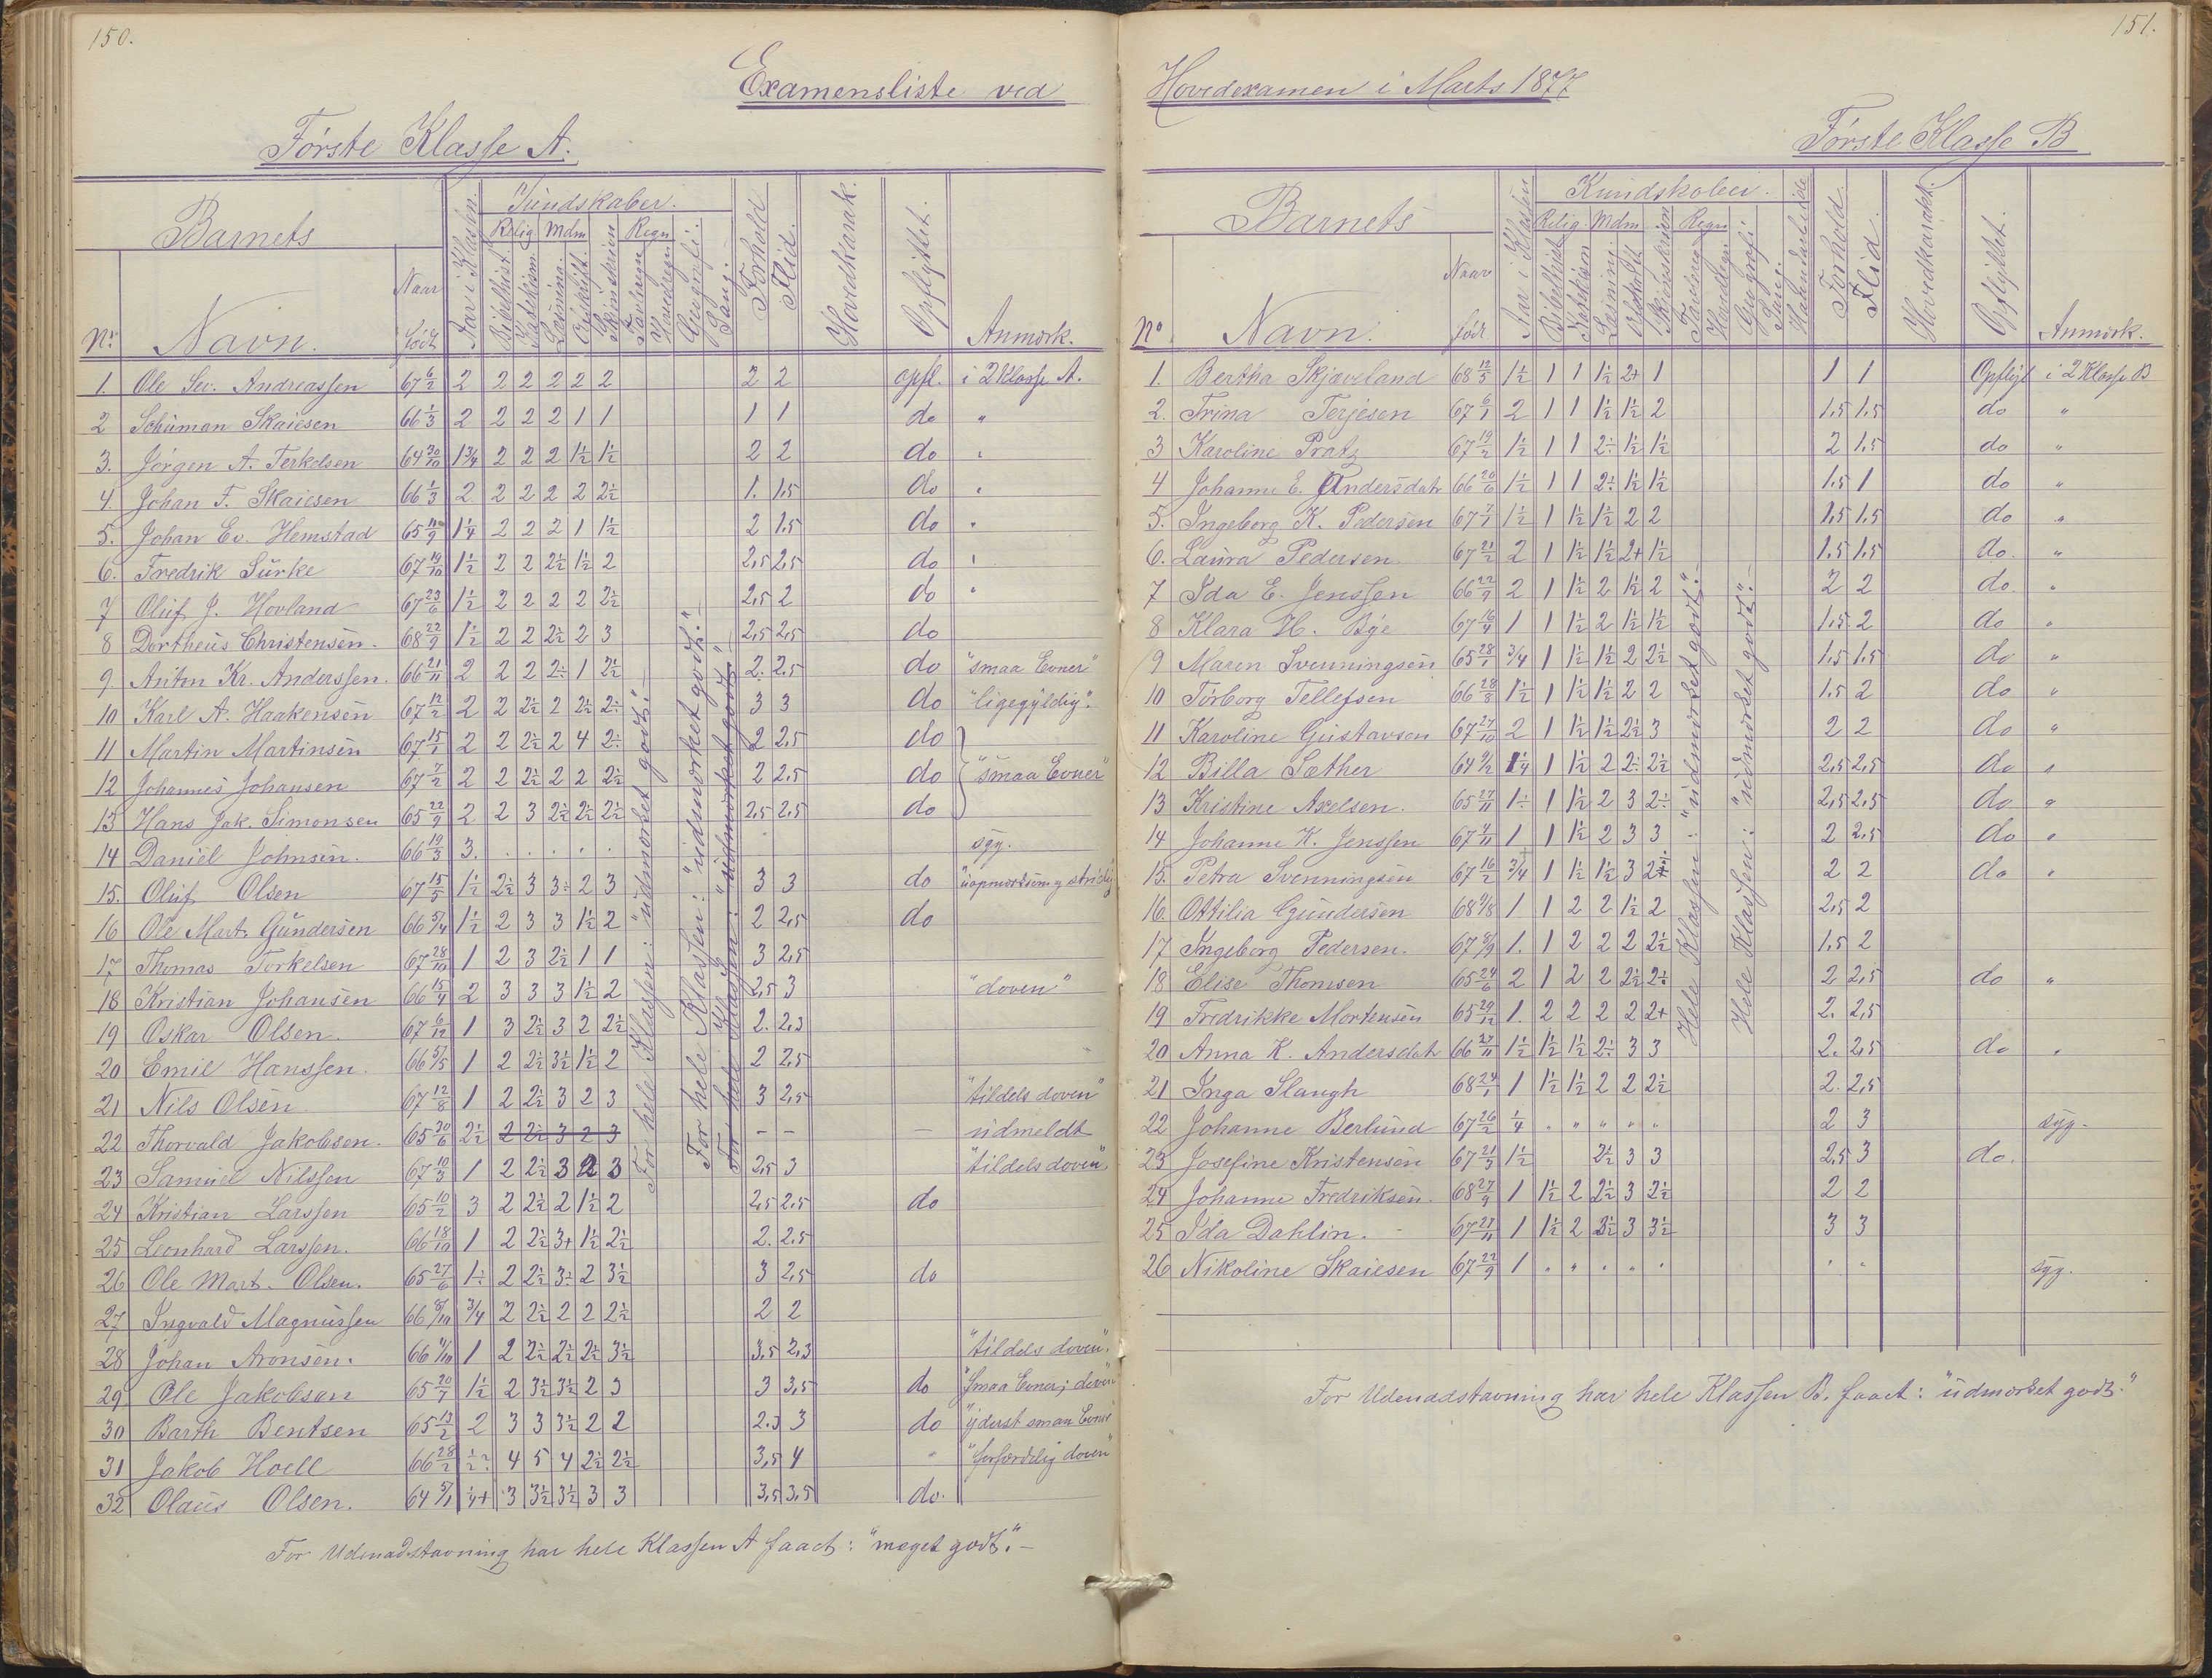 150.
Examensliste ved
Første Klasse A.
Barnets
Kundskaber.
Relig Mdm Regn
No Navn. Naar født Aar i Klassen. Forhold Flid. Hovedkarak. Opflyttet. Anmærk.
1. Ole Sev. Andreassen 67 6/2 2 2 2 2 2 2 2 2 opfl. i 2 Klasse A.
2 Schuman Skaiesen 66 1/3 2 2 2 2 1 1 1 1 do "
3. Jørgen A. Terkelsen 64 30/10 1 3/4 2 2 2 1½ 1½ 2 2 do "
4. Johan F. Skaiesen 66 1/3 2 2 2 2 2 2½ 1. 1,5 do "
5. Johan Ev. Hemstad 65 11/9 1¼ 2 2 2 1 1½ 2 1.5 do "
6. Fredrik Surke 67 19/10 1½ 2 2 2½ 1½ 2 2,5 2,5 do "
7 Oluf J. Hovland 67 23/6 1½ 2 2 2 2 2½ 2,5 2 do "
8 Dortheus Christensen. 68 22/9 1½ 2 2 2½ 2 3 2,5 2,5 do
9 Anton Kr. Anderssen. 66 21/11 2 2 2 2÷ 1 2½ 2. 2,5 do "smaa Evner"
10 Karl A. Haakensen 67 12/2 2 2 2½ 2 2½ 2÷ 3 3 do "ligegyldig".
11 Martin Martinsen 67 15/1 2 2 2½ 2 4 2÷ 2 2,5 do
12 Johannes Johansen 67 7/2 2 2 2½ 2 2 2½ 2 2,5 do "smaa Evner"
13 Hans Jak. Simonsen 65 22/9 2 2 3 2½ 2½ 2½ 2,5 2,5 do
14 Daniel Johnsen. 66 19/3 3. . . . . . syg.
15. Oluf Olsen 67 15/5 1½ 2½ 3 3÷ 2 3 3 3 do
16 Ole Mart. Gundersen 66 5/4 1½ 2 3 3 1½ 2 2 2,5 do
17 Thomas Torkelsen 67 28/10 1 2 3 2½ 1 1 3 2,5
18 Kristian Johansen 66 15/4 2 3 3 3 1½ 2 2,5 3 "doven"
19 Oskar Olsen. 67 6/12 1 3 2½ 3 2 2½ 2. 2,3
20 Emil Hanssen. 66 5/5 1 2 2½ 3½ 1½ 2 2 2,5
21 Nils Olsen 67 12/8 1 2 2½ 3 2 3 3 2,5 "tildels doven"
22 Thorvald Jakobsen. 65 30/6 2½ 2 2½ 3 2 3 – – – udmeldt
23 Samuel Nilssen 67 10/3 1 2 2½ 3 2 3 2,5 3 "tildels doven"
24 Kristian Larssen 65 10/2 3 2 2½ 2 1½ 2 2,5 2.5 do
25 Leonhard Larssen. 66 18/10 1 2 2½ 3+ 1½ 2½ 2. 2.5
26 Ole Mart. Olsen. 65 27/6 1÷ 2 2½ 3÷ 2 3½ 3 2,5 do
27 Ingvald Magnussen 66 8/10 3/4 2 2½ 2 2 2½ 2 2
28 Johan Aronsen. 66 11/10 1 2 2½ 2½ 2½ 3½ 3,5 2,3 "tildels doven".
29 Ole Jakobsen 65 20/7 1½ 2 3½ 3½ 2 3 3 3,5 do "smaa Evner; doven"
30 Barth Bentsen 65 13/2 2 3 3 3½ 2 2 2.3 3 do "yderst smaa Evner"
31 Jakob Hoell 66 28/2 4 5 4 2½ 2½ 3,5 4 " "forfærdelig doven"
32 Olaus Olsen. 64 5/1 ¼+ 3 3½ 3½ 3 3 3,5 3,5 do.
For hele Klassen: "udmærket godt".–
For hele Klassen: "udmærket godt".–
For hele Klassen: "udmærket godt"
For Udenadstavning har hele Klassen A faaet: "meget godt".–
151.
Hovedexamen i Marts 1877
Første Klasse B
Barnets
Kundskaber.
Relig. Mdm Regn
No Navn. Naar født Aar i Klassen Forhold. Flid. Hovedkarakt. Opflyttet. Anmærk.
1. Bertha Skjæveland 68 12/5 1½ 1 1 1½ 2+ 1 1 1 Opflyt i 2 Klasse B
2. Trina Terjesen 67 6/1 2 1 1 1½ 1½ 2 1,5 1,5 do "
3 Karoline Pratz 67 19/2 1½ 1 1 2÷ 1½ 1½ 2 1,5 do "
4 Johanne E. Andersdatr 66 20/6 1½ 1 1 2÷ 1½ 1½ 1.5 1 do "
5. Ingeborg K. Pedersen 67 7/1 1½ 1 1½ 1½ 2 2 1,5 1.5 do "
6. Laura Pedersen 67 21/2 2 1 1½ 1½ 2+ 1½ 1.5 1,5 do. "
7 Ida E. Jenssen 66 22/9 2 1 1½ 2 1½ 2 2 2 do. "
8 Klara H. Bye 67 16/4 1 1 1½ 2 1½ 1½ 1.5 2 do "
9 Maren Svenningsen 65 28/1 3/4 1 1½ 1½ 2 2½ 1,5 1,5 do "
10 Torborg Tellefsen 66 28/8 1½ 1 1½ 1½ 2 2 1.5 2 do "
11 Karoline Gustavsen 67 27/10 2 1 1½ 1½ 2½ 3 2 2 do "
12 Billa Sæther 1¼ 1 1½ 2 2÷ 2½ 2,5 2,5 do "
13 Kristine Axelsen. 65 27/11 1÷ 1 1½ 2 3 2÷ 2,5 2,5 do "
14 Johanne K. Jenssen 67 4/11 1 1 1½ 2 3 3 2 2.5 do "
15. Petra Svenningsen 67 16/2 3/4 1 1½ 1½ 3 2 2 2 do "
16. Ottilia Gundersen 1 1 2 2 1½ 2 2,5 2
17 Ingeborg Pedersen. 67 8/9 1. 1 2 2 2 2½ 1,5 2
18 Elise Thomsen 65 24/6 2 1 2 2 2½ 2÷ 2 2,5 do "
19 Fredrikke Mortensen 65 29/12 1. 2 2 2 2 2+ 2. 2,5
20 Anna K. Andersdatr 66 27/11 1½ 1½ 1½ 2÷ 3 3 2. 2,5 do "
21 Inga Slaugh 68 24/1 1 1½ 1½ 2 2 2½ 2. 2,5
22 Johanne Berlund 67 26/2 ¼ " " " " " 2 3 syg.
23 Josefine Kristensen 67 21/3 1½ 2½ 3 3 2,5 3 do.
24 Johanne Fredriksen. 68 27/9 1 1½ 2 2½ 3 2½ 2 2
25 Ida Dahlin. 67 27/11 1 1½ 2 3½ 3 3½ 3 3
26 Nikoline Skaiesen 67 22/9 1 " " " " " " " syg.
Hele Klassen: "udmærket godt".–
Hele Klassen: "udmærket godt".–
For Udenadstavning har hele Klassen B. faaet: "udmærket godt."